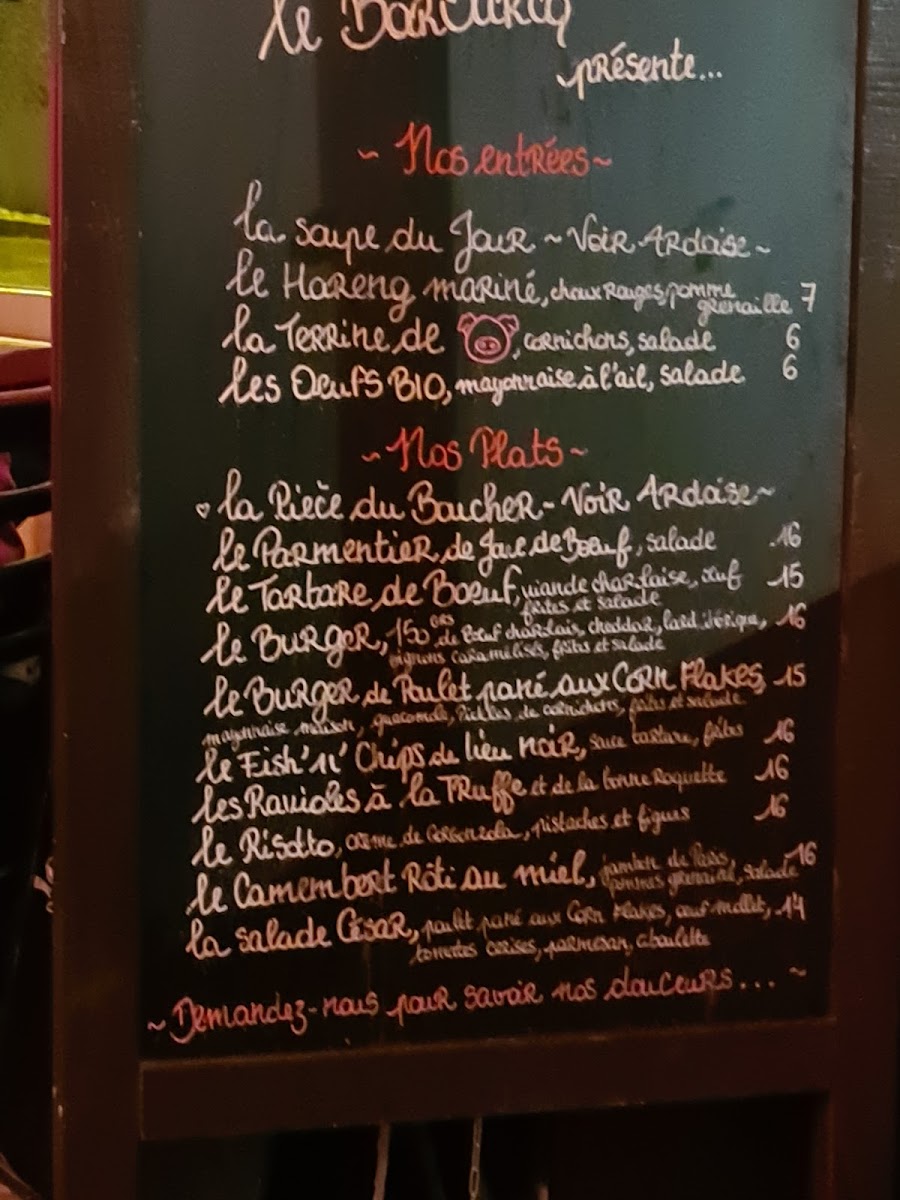 le BarOurcq
présente...
~ Nos entrées ~
la soupe du Jour ~ Voir Ardoise ~
le Hareng mariné, choux rouges, pomme grenaille 7
la Terrine de , cornichons, salade 6
les Oeufs BIO, mayonnaise à l'ail, salade 6
~ Nos Plats ~
la Pièce du Boucher - Voir Ardoise ~
le Parmentier de Joue de Boeuf, salade 16
le Tartare de Boeuf, viande charolaise, oeuf 15
frites et salade
le Burger, 150 grs de Boeuf charolais, cheddar, lard ibérique, 16
oignons caramélisés, frites et salade
le Burger de Poulet pané aux Corn Flakes, 15
mayonnaise maison, guacamole, Pickles de cornichons, frites et salade
le Fish'n' Chips de lieu noir, sauce tartare, frites 16
les Ravioles à la Truffe et de la bonne Roquette 16
le Risotto, crème de Gorgonzola, pistaches et figues 16
le Camembert Rôti au miel, jambon de Paris, 16
pommes grenaille, salade
la salade César, poulet pané aux Corn Flakes, oeuf mollet, 14
tomates cerises, parmesan, ciboulette
~ Demandez-nous pour savoir nos douceurs... ~